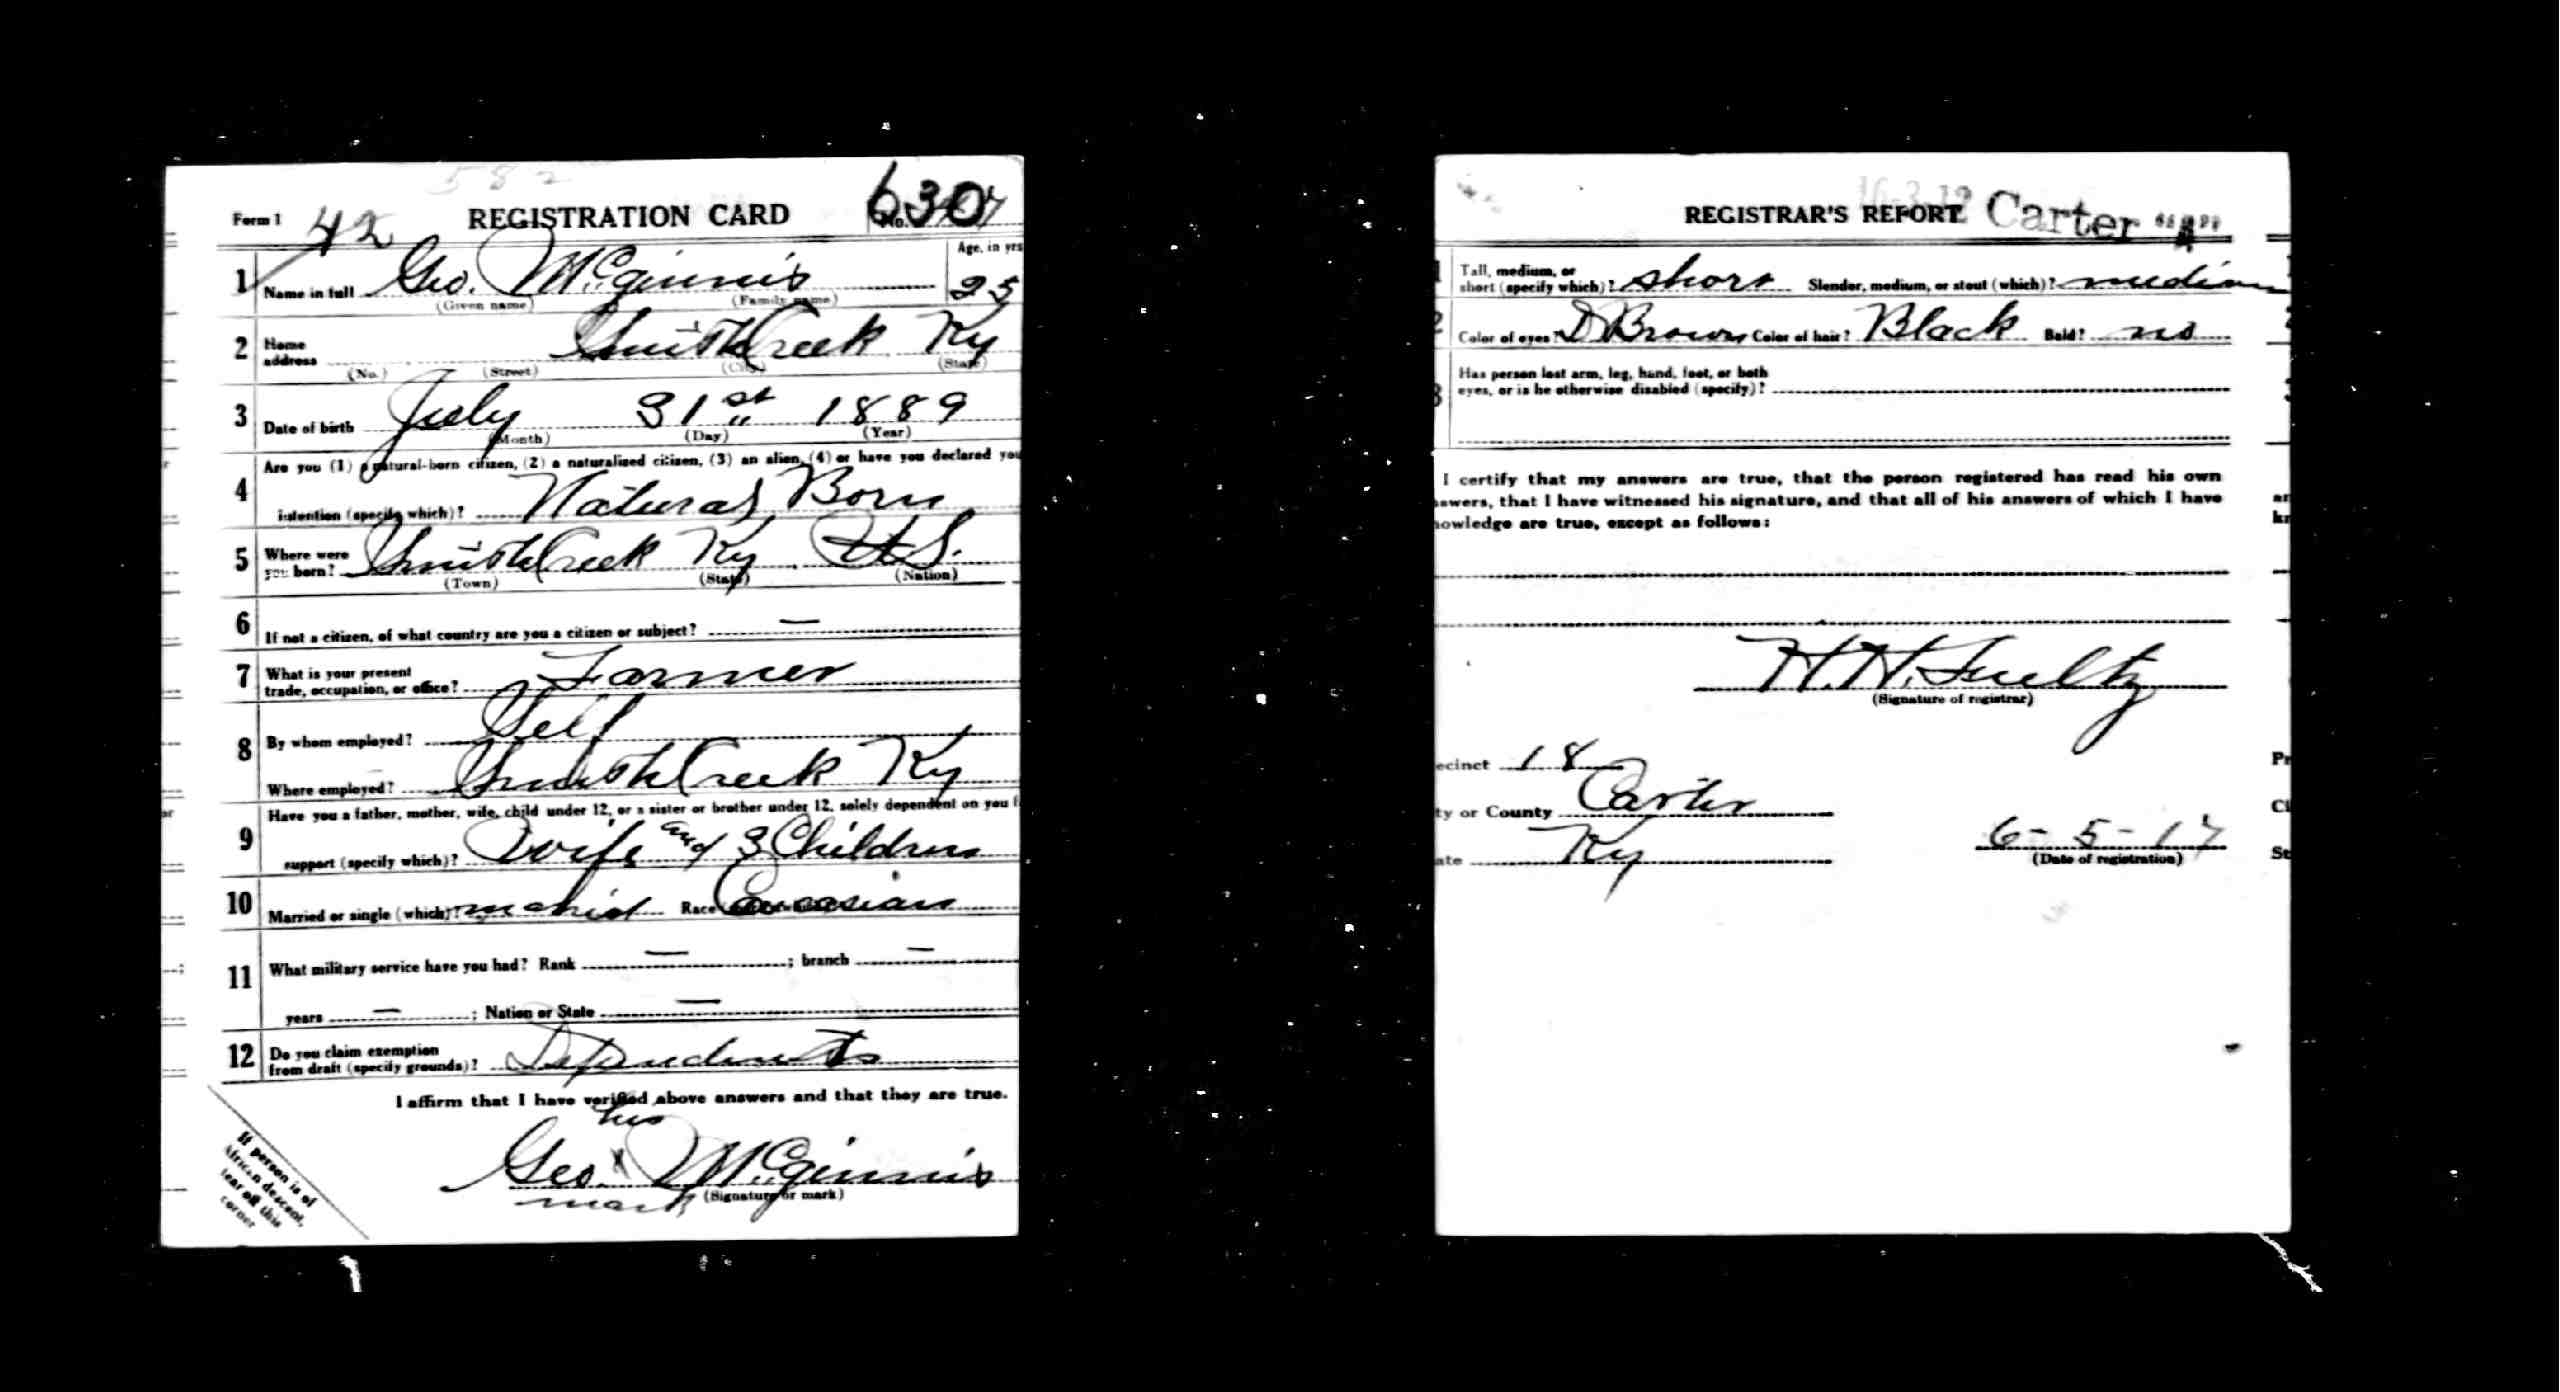 582
Form 1 42 REGISTRATION CARD No. 630
1 Name in full Geo. McGinnis 25
(Given name) (Family name) Age, in yrs
2 Home address Smith Creek Ky
(No.) (Street) (City) (State)
3 Date of birth July 31st 1889
(Month) (Day) (Year)
4 Are you (1) a natural-born citizen, (2) a naturalized citizen, (3) an alien, (4) or have you declared you
intention (specify which)? Natural Born
5 Where were you born? Smith Creek Ky U.S.
(Town) (State) (Nation)
6 If not a citizen, of what country are you a citizen or subject? —
7 What is your present
trade, occupation, or office? Farmer
8 By whom employed? Self
Where employed? Smith Creek Ky
9 Have you a father, mother, wife, child under 12, or a sister or brother under 12, solely dependent on you f
support (specify which)? Wife and 3 Children
10 Married or single (which)? maried Race Caucasian
11 What military service have you had? Rank — ; branch —
years — ; Nation or State —
12 Do you claim exemption
from draft (specify grounds)? Dependents
I affirm that I have verified above answers and that they are true.
his
Geo. x McGinnis
mark (Signature or mark)
If person is of
African descent,
tear off this
corner
REGISTRAR'S REPORT Carter
1 Tall, medium, or
short (specify which)? short Slender, medium, or stout (which)? medium
2 Color of eyes? D Brown Color of hair? Black Bald? no
3 Has person lost arm, leg, hand, foot, or both
eyes, or is he otherwise disabled (specify)?
I certify that my answers are true, that the person registered has read his own
swers, that I have witnessed his signature, and that all of his answers of which I have
owledge are true, except as follows:
H. H. Fueltz
(Signature of registrar)
ecinct 18
ty or County Carter
ate Ky 6-5-17
(Date of registration)